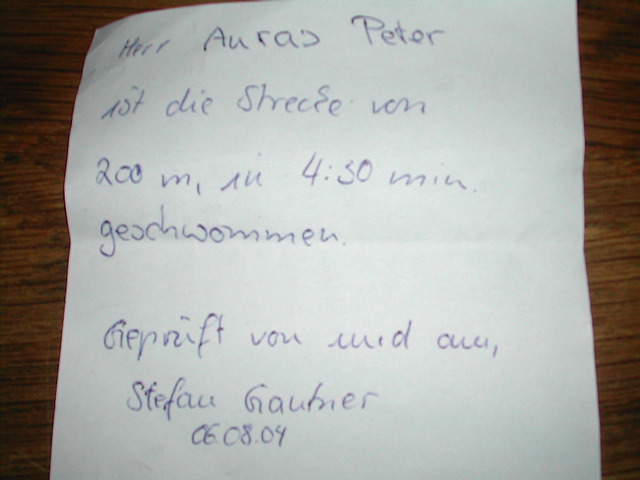 Herr Auras Peter
ist die Strecke von
200 m, in 4:30 min.
geschwommen.
Geprüft von und am,
Stefan
06.08.04